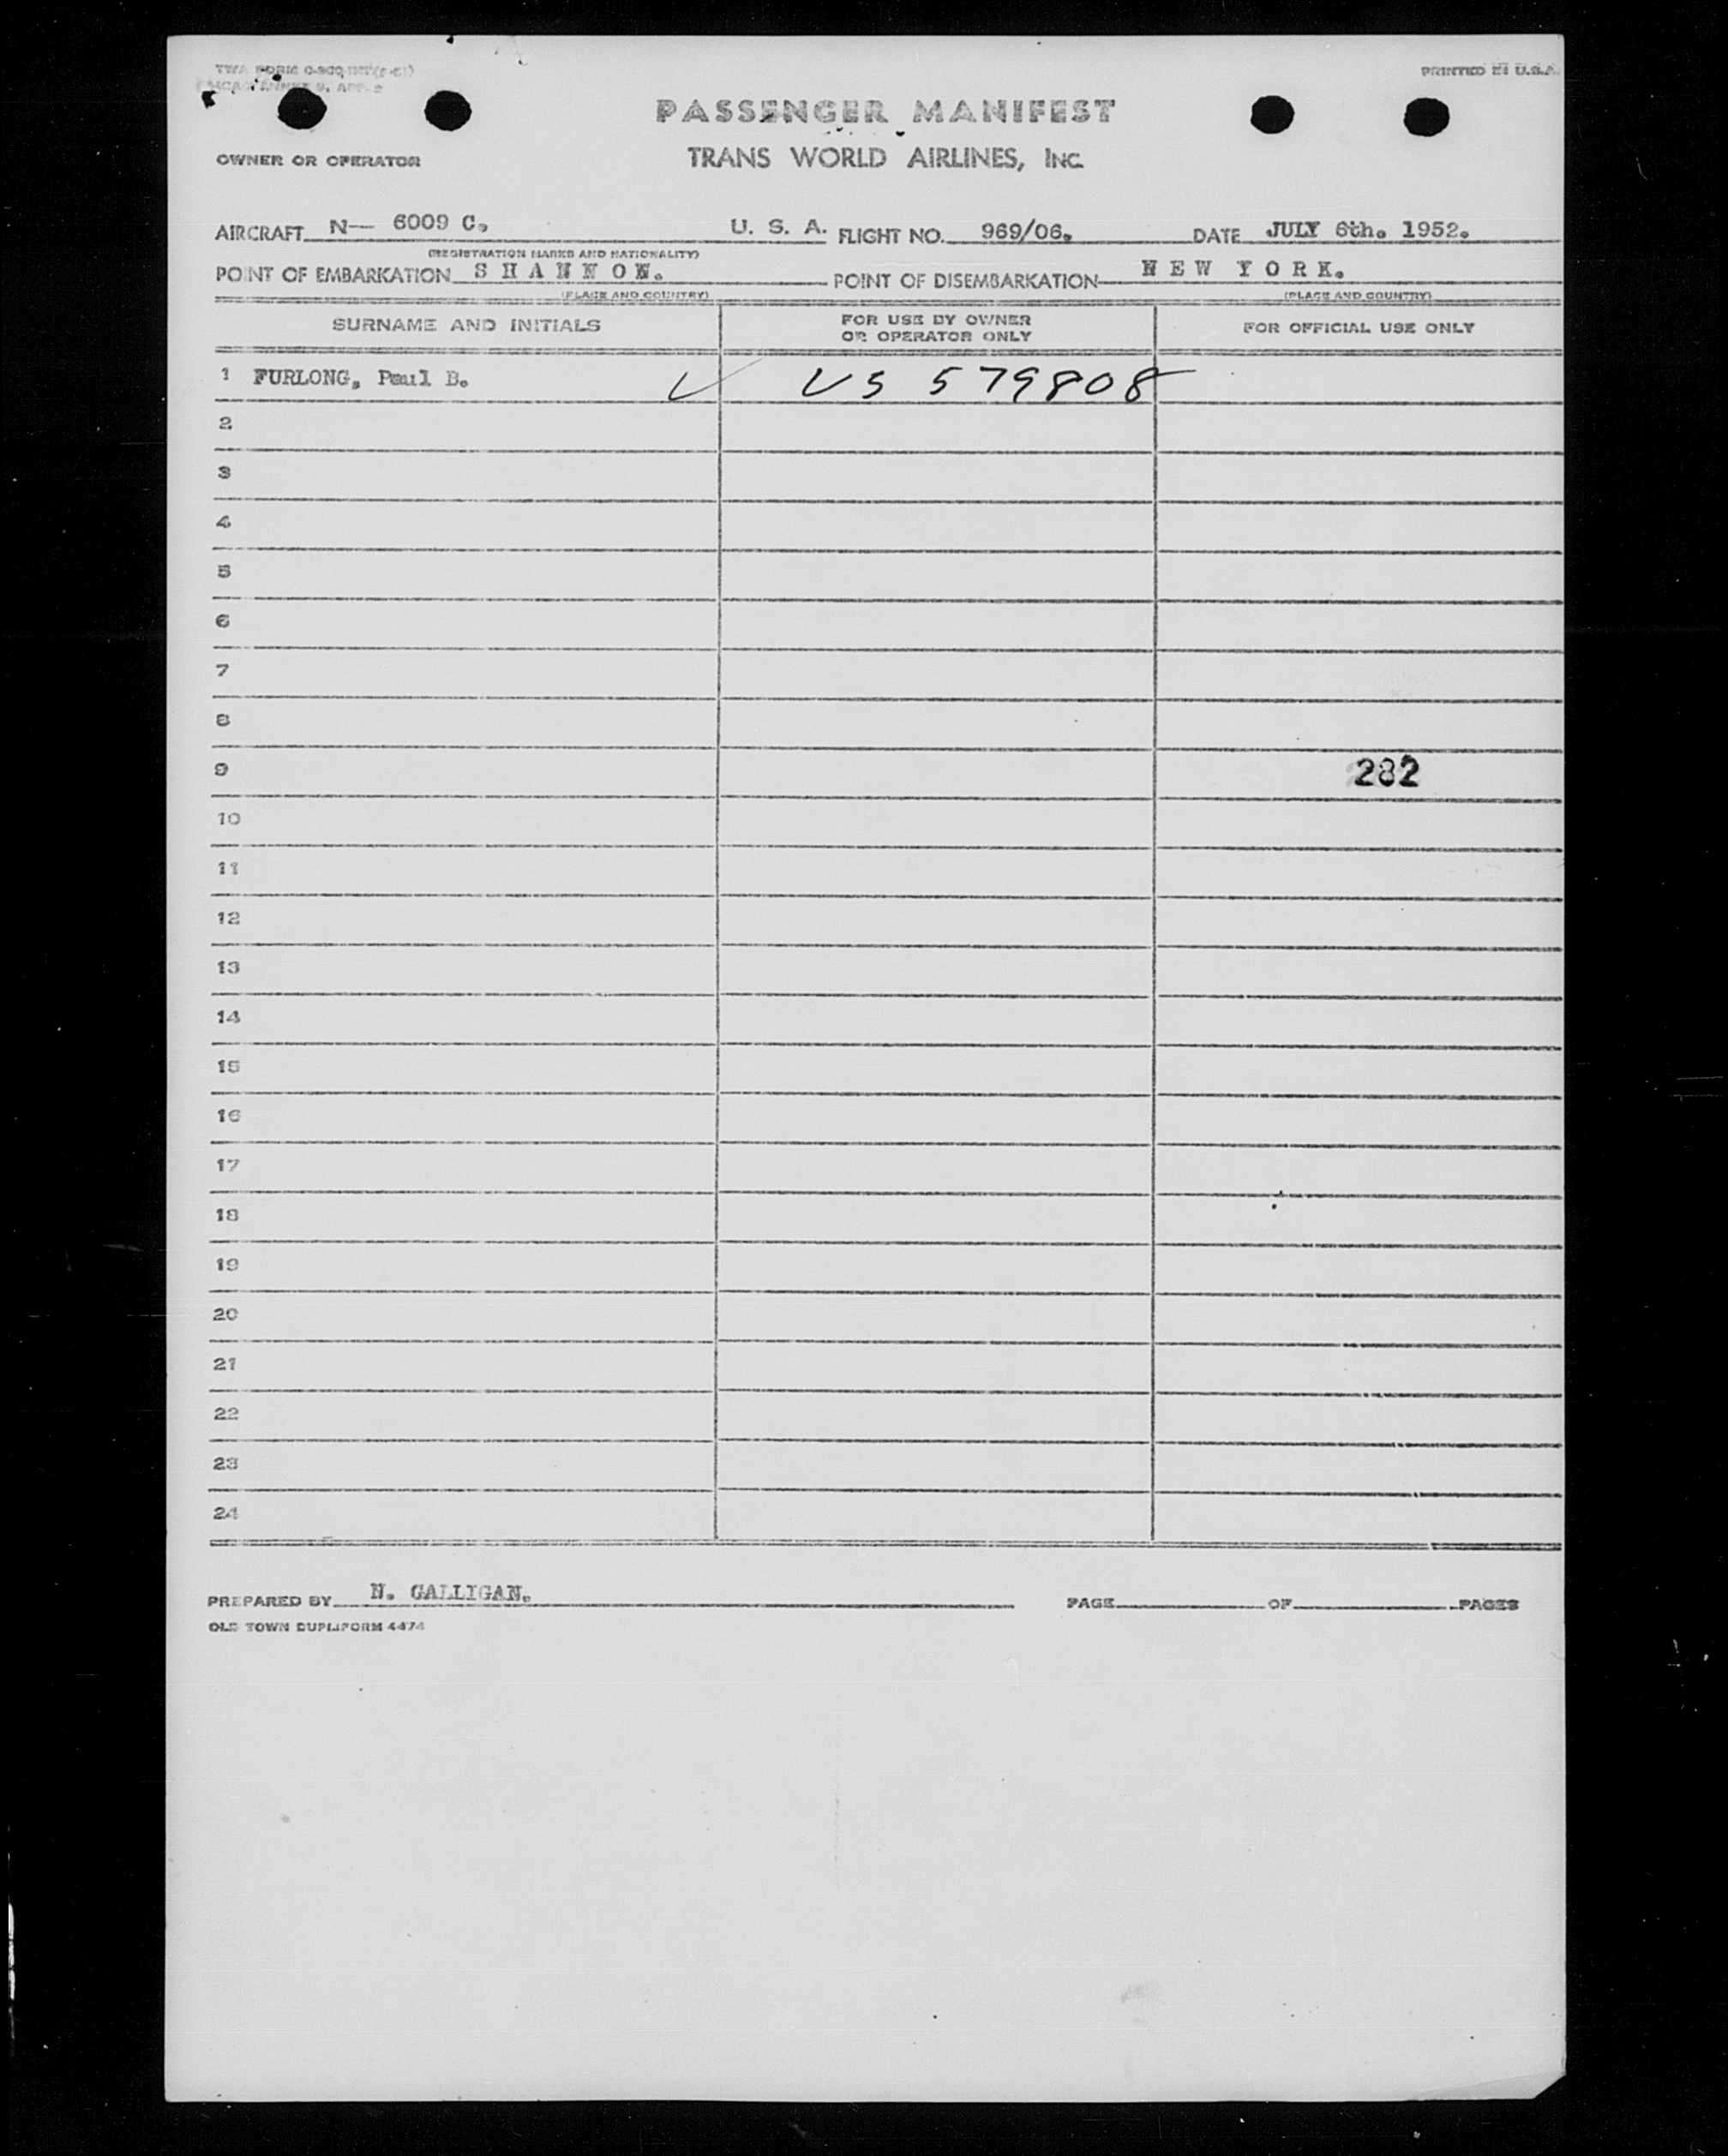 TWA FORM
PRINTED IN U.S.A.
PASSENGER MANIFEST
OWNER OR OPERATOR TRANS WORLD AIRLINES, INC.
AIRCRAFT N— 6009 C. U. S. A. FLIGHT NO. 969/06. DATE JULY 6th. 1952.
(REGISTRATION MARKS AND NATIONALITY)
POINT OF EMBARKATION S H A N N O N. POINT OF DISEMBARKATION N E W Y O R K.
(PLACE AND COUNTRY) (PLACE AND COUNTRY)
SURNAME AND INITIALS FOR USE BY OWNER OR OPERATOR ONLY FOR OFFICIAL USE ONLY
1 FURLONG, Paul B. ✓ US 579808
2
3
4
5
6
7
8
9 282
10
11
12
13
14
15
16
17
18
19
20
21
22
23
24
PREPARED BY N. GALLIGAN. PAGE OF PAGES
OLD TOWN DUPLIFORM 4474